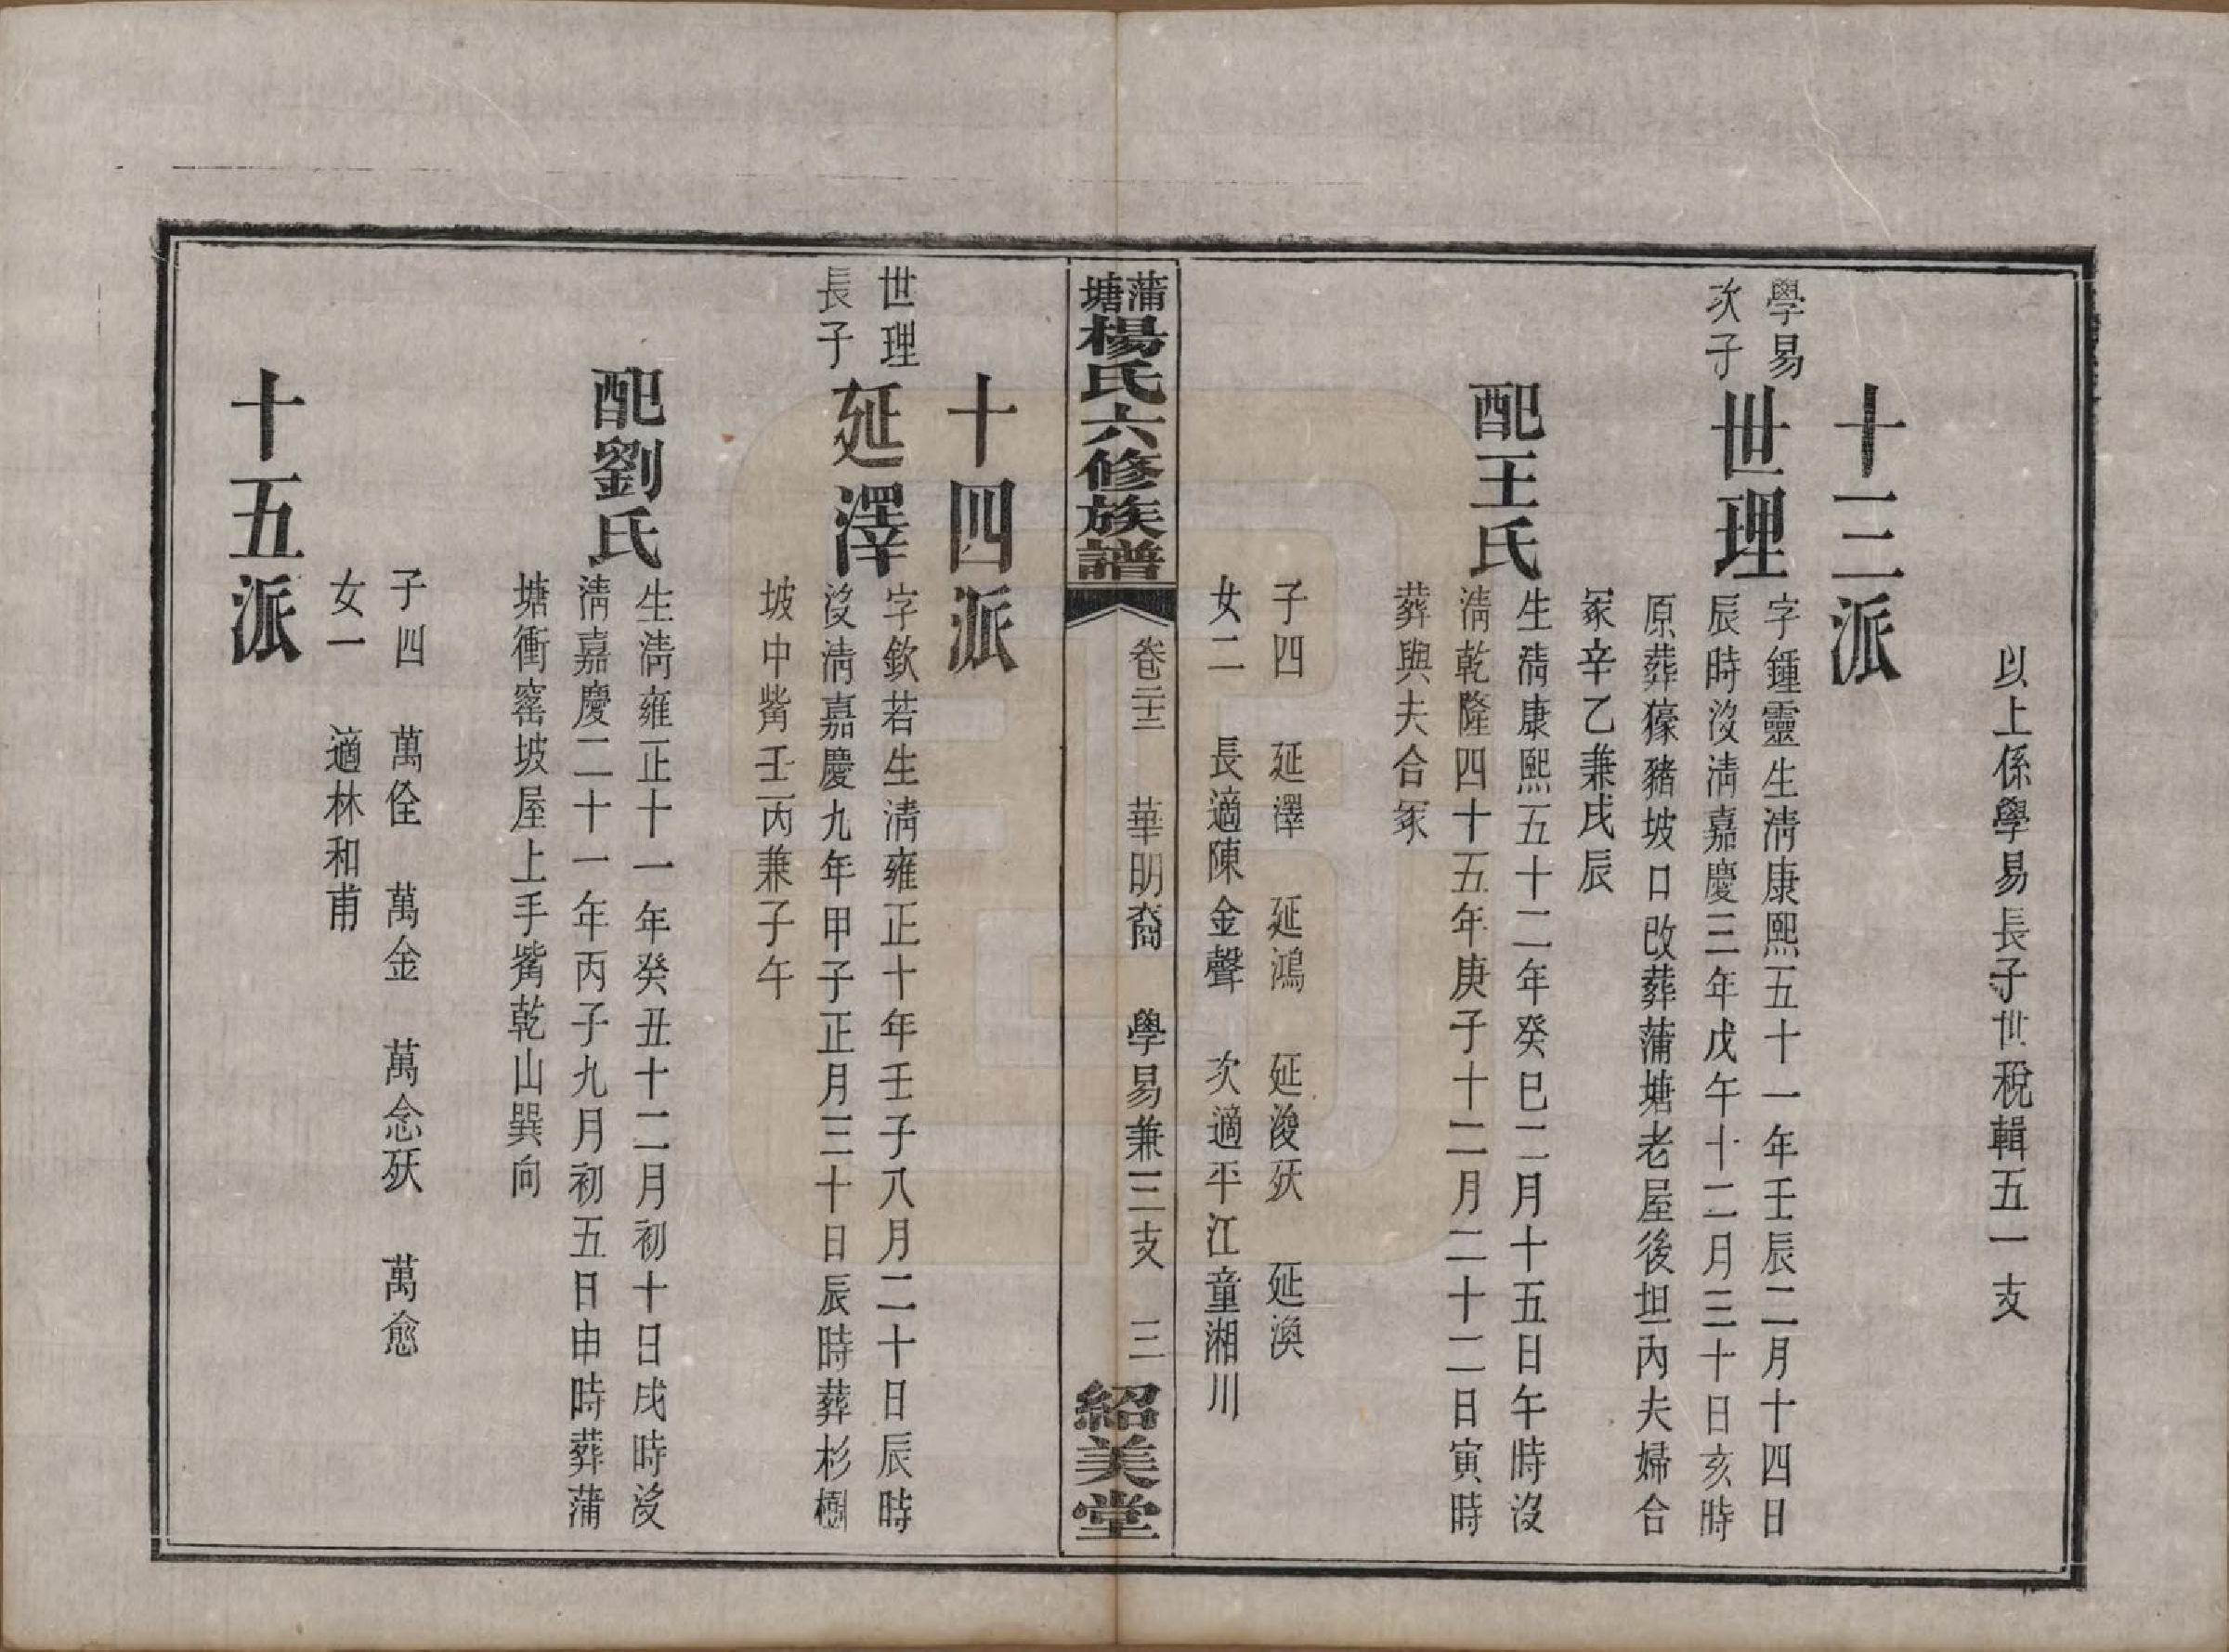 以上係學易長子世稅輯五一支
十三派
學易
次子
世理
字鍾靈生淸康熙五十一年壬辰二月十四日
辰時沒淸嘉慶三年戊午十二月三十日亥時
原葬㺜豬坡口改葬蒲塘老屋後坦內夫婦合
冢辛乙兼戌辰
配王氏
生淸康熙五十二年癸巳二月十五日午時沒
淸乾隆四十五年庚子十二月二十二日寅時
葬與夫合冢
子四 延澤 延鴻 延浚殀 延渙
女二 長適陳金聲 次適平江童湘川
蒲塘楊氏六修族譜
卷二十三 華明裔 學易兼三支 三
紹美堂
十四派
世理
長子
延澤
字欽若生淸雍正十年壬子八月二十日辰時
沒淸嘉慶九年甲子正月三十日辰時葬杉樹
坡中嘴壬丙兼子午
配劉氏
生淸雍正十一年癸丑十二月初十日戌時沒
淸嘉慶二十一年丙子九月初五日申時葬蒲
塘衝窰坡屋上手嘴乾山巽向
子四 萬佺 萬金 萬念殀 萬愈
女一 適林和甫
十五派